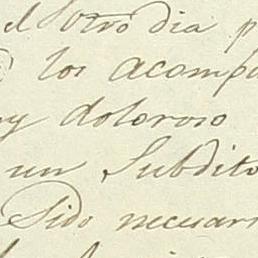 el otro dia p
los acompa
y doloroso
un Subdito
Sido necesar